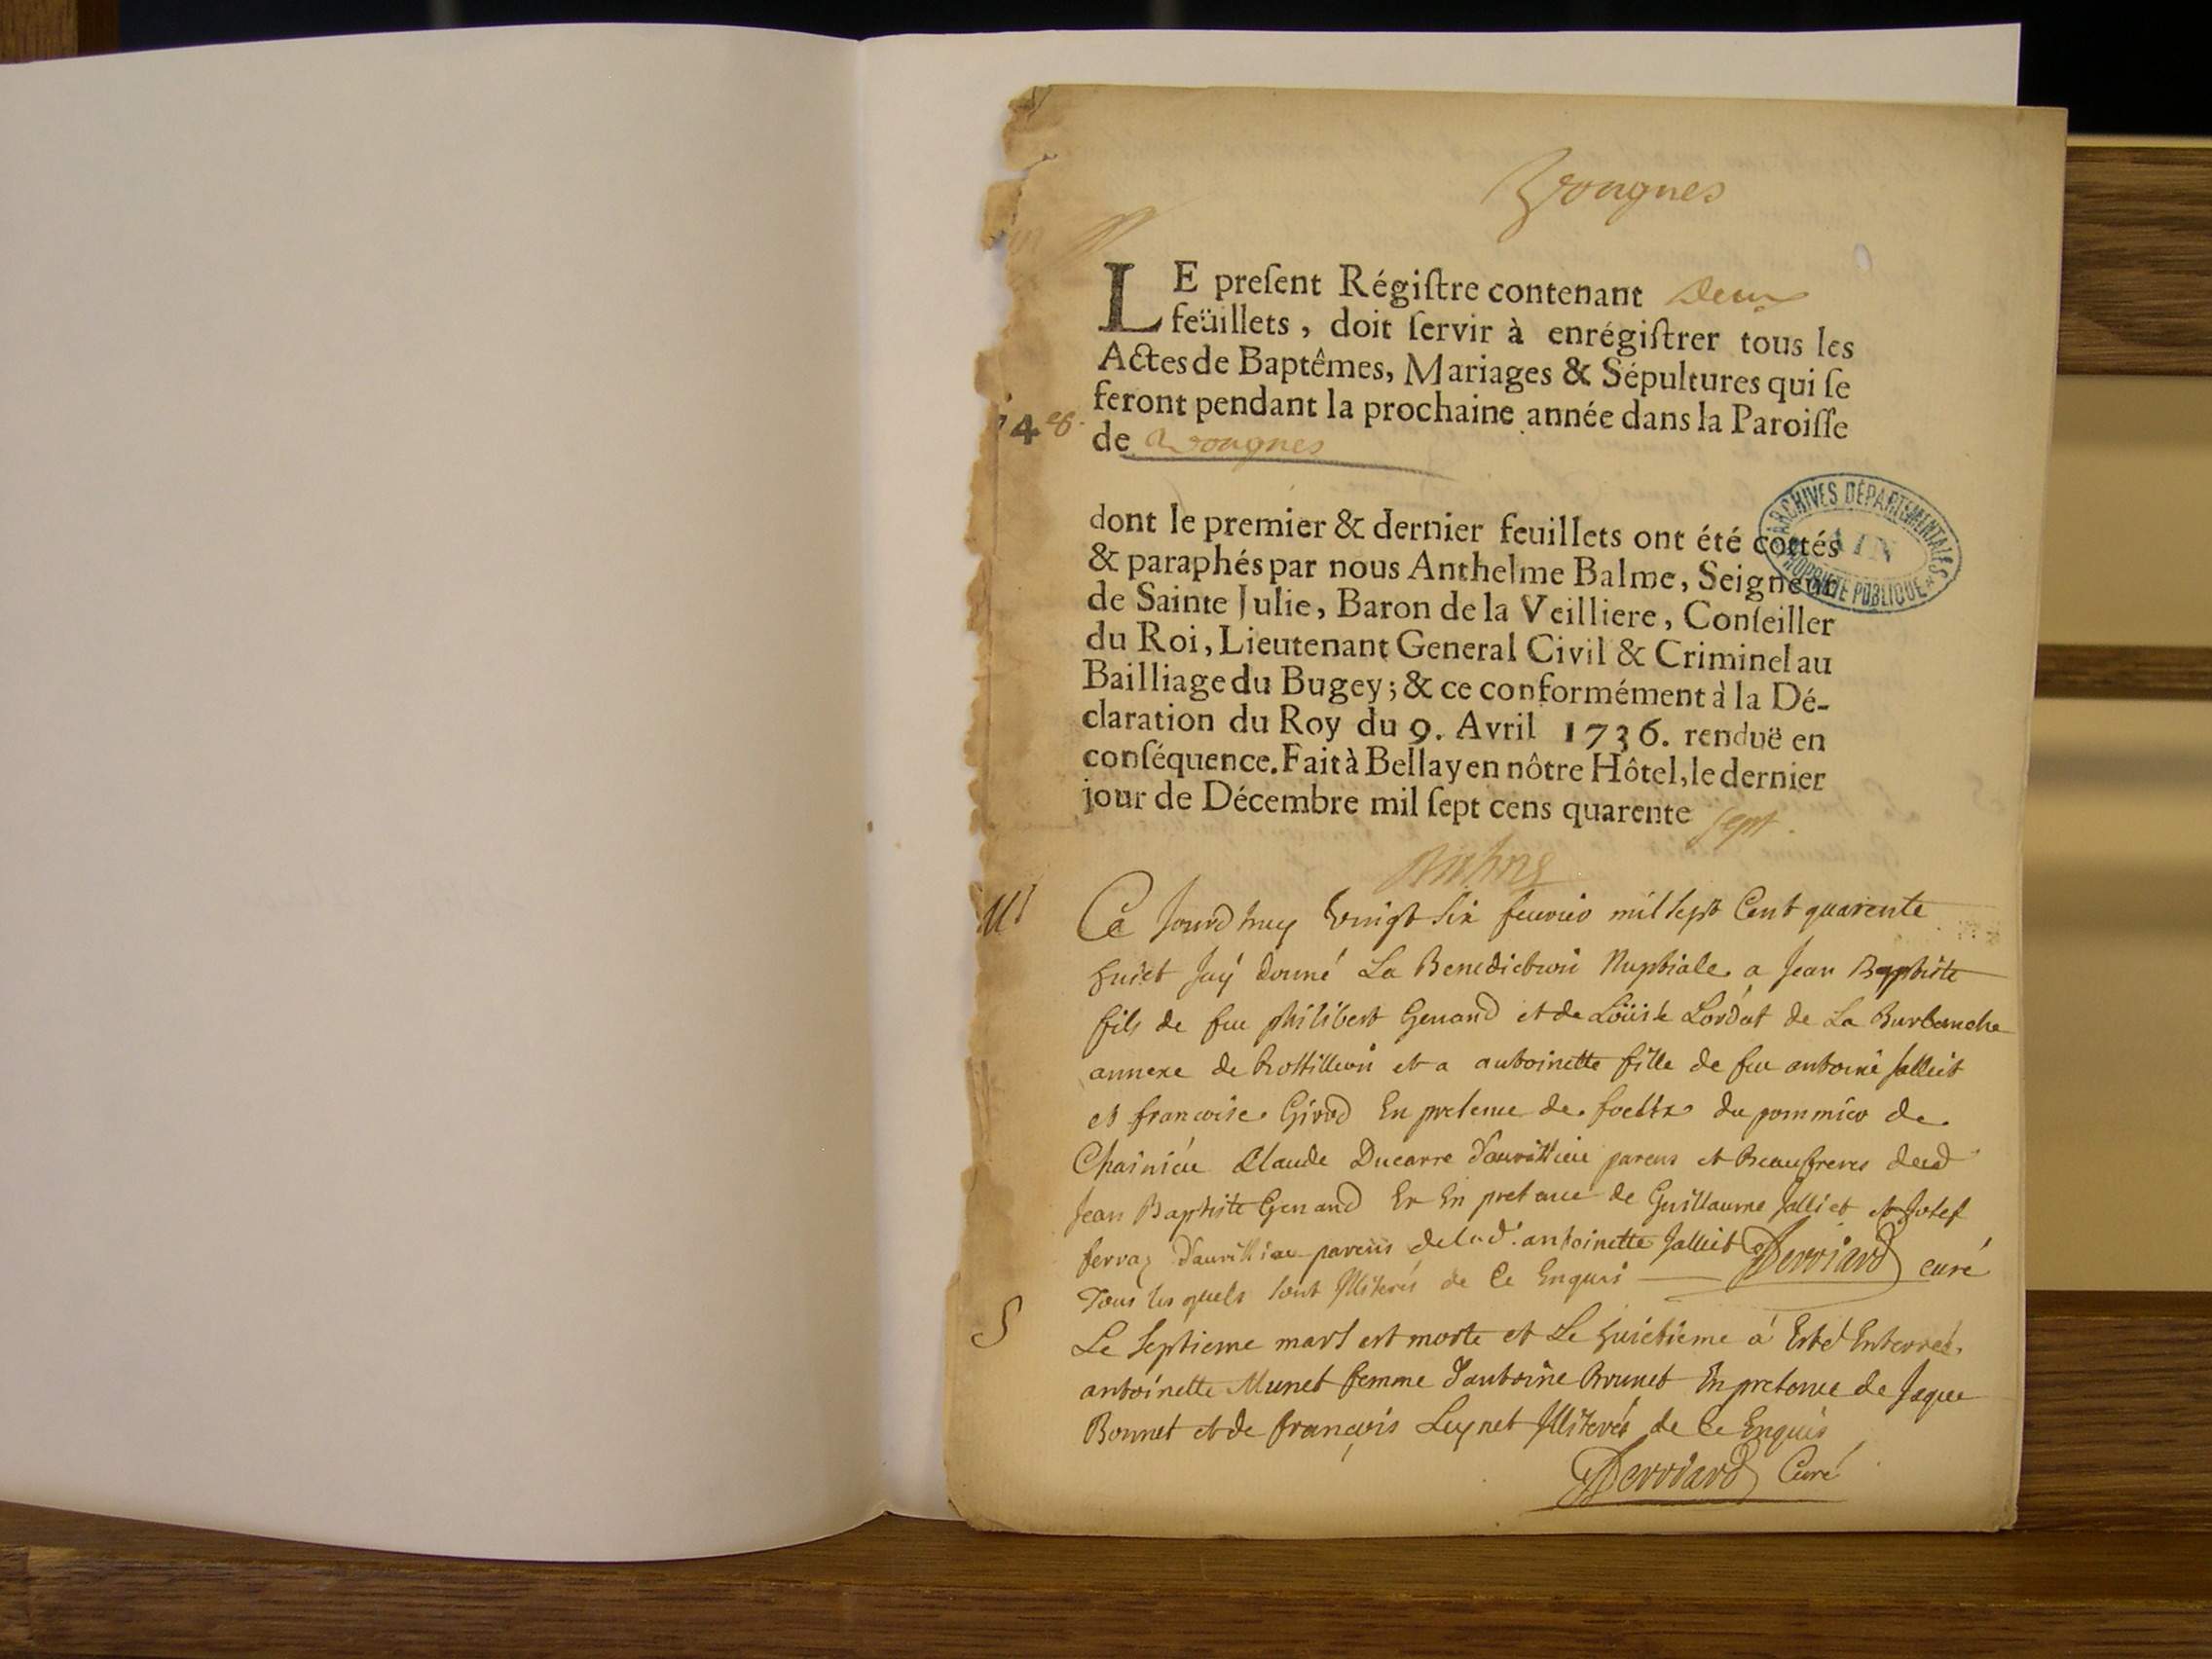 LE preſent Régiſtre contenant Deux
feüillets, doit ſervir à enrégiſtrer tous les
Actes de Baptêmes, Mariages & Sépultures qui ſe
feront pendant la prochaine année dans la Paroiſſe
74 8.
de
dont le premier & dernier feuillets ont été cottés
& paraphés par nous Anthelme Balme, Seigneur
de Sainte Julie, Baron de la Veilliere, Conſeiller
du Roi, Lieutenant General Civil & Criminel au
Bailliage du Bugey; & ce conformément à la Dé-
claration du Roy du 9. Avril 1736. renduë en
conſéquence. Fait à Bellay en nôtre Hôtel, le dernier
jour de Décembre mil ſept cens quarente sept.
ARCHIVES DÉPARTEMENTALES
AIN
PROPRIÉTÉ PUBLIQUE
M
Ce Jourd'huy Vingt Six feuvrier mil Sept Cent quarente
huict Jay donné La Benediction Nuptiale a Jean Baptiste
fils de feu philibert Genand et de Loüise Lordat de La Burbanche
annexe de Rossillion et a antoinette fille de feu antoine Jalliet
et francoise Girod En presence de de
Claude Ducarre parens et Beaufreres dud
Jean Baptiste Genand Et En presence de Guillaume Jalliet et Josef
ferraz parens de lad. antoinette Jalliet Derriard curé
Tous lesquels sont Illiterés de Ce Enquis
S
Le Septieme mars est morte et Le huictieme a Esté Enterrée
antoinette Munet femme d'antoine Brunet En presence de Jaque
Bonnet et de françois Luynet Illiterés de Ce Enquis
Derriard Curé